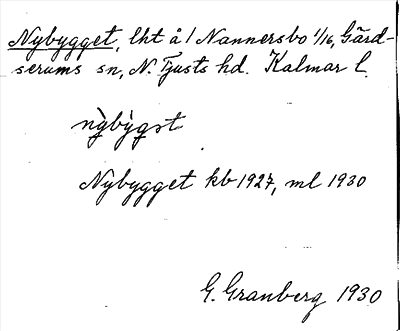 Nybygget, lht å 1 Nannersbo 1/16, Gärd-
serums sn, N. Tjusts hd. Kalmar l.
nỳbỳgst
Nybygget kb 1927, ml 1930
G. Granberg 1930